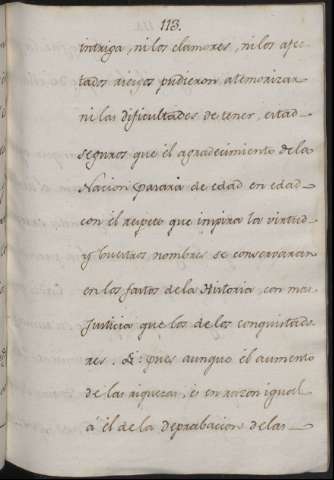 113.
intriga, ni los clamores, ni los afec-
tados ruegos pudieron atemorizar
ni las dificultades de tener, estad
seguros que él agradecimiento de la
Nacion pasara de edad en edad
con él respeto que inspira la virtud
y buestros nombres se conservaran
en los fastos de la Historia, con mas
Justicia que los de los conquistado-
res. &: pues aunque él aumento
de las riquezas, es en razon igual
á él de la Deprabacion de las